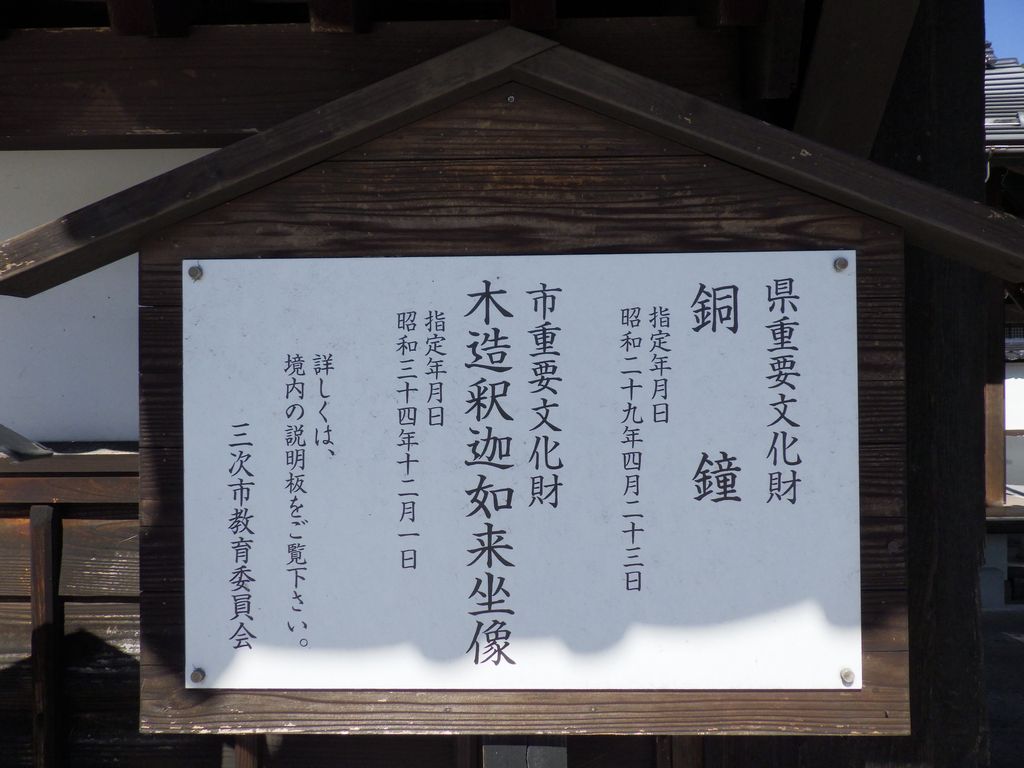 県重要文化財
銅鐘
指定年月日
昭和二十九年四月二十三日
市重要文化財
木造釈迦如来坐像
指定年月日
昭和三十四年十二月一日
詳しくは、
境内の説明板をご覧下さい。
三次市教育委員会